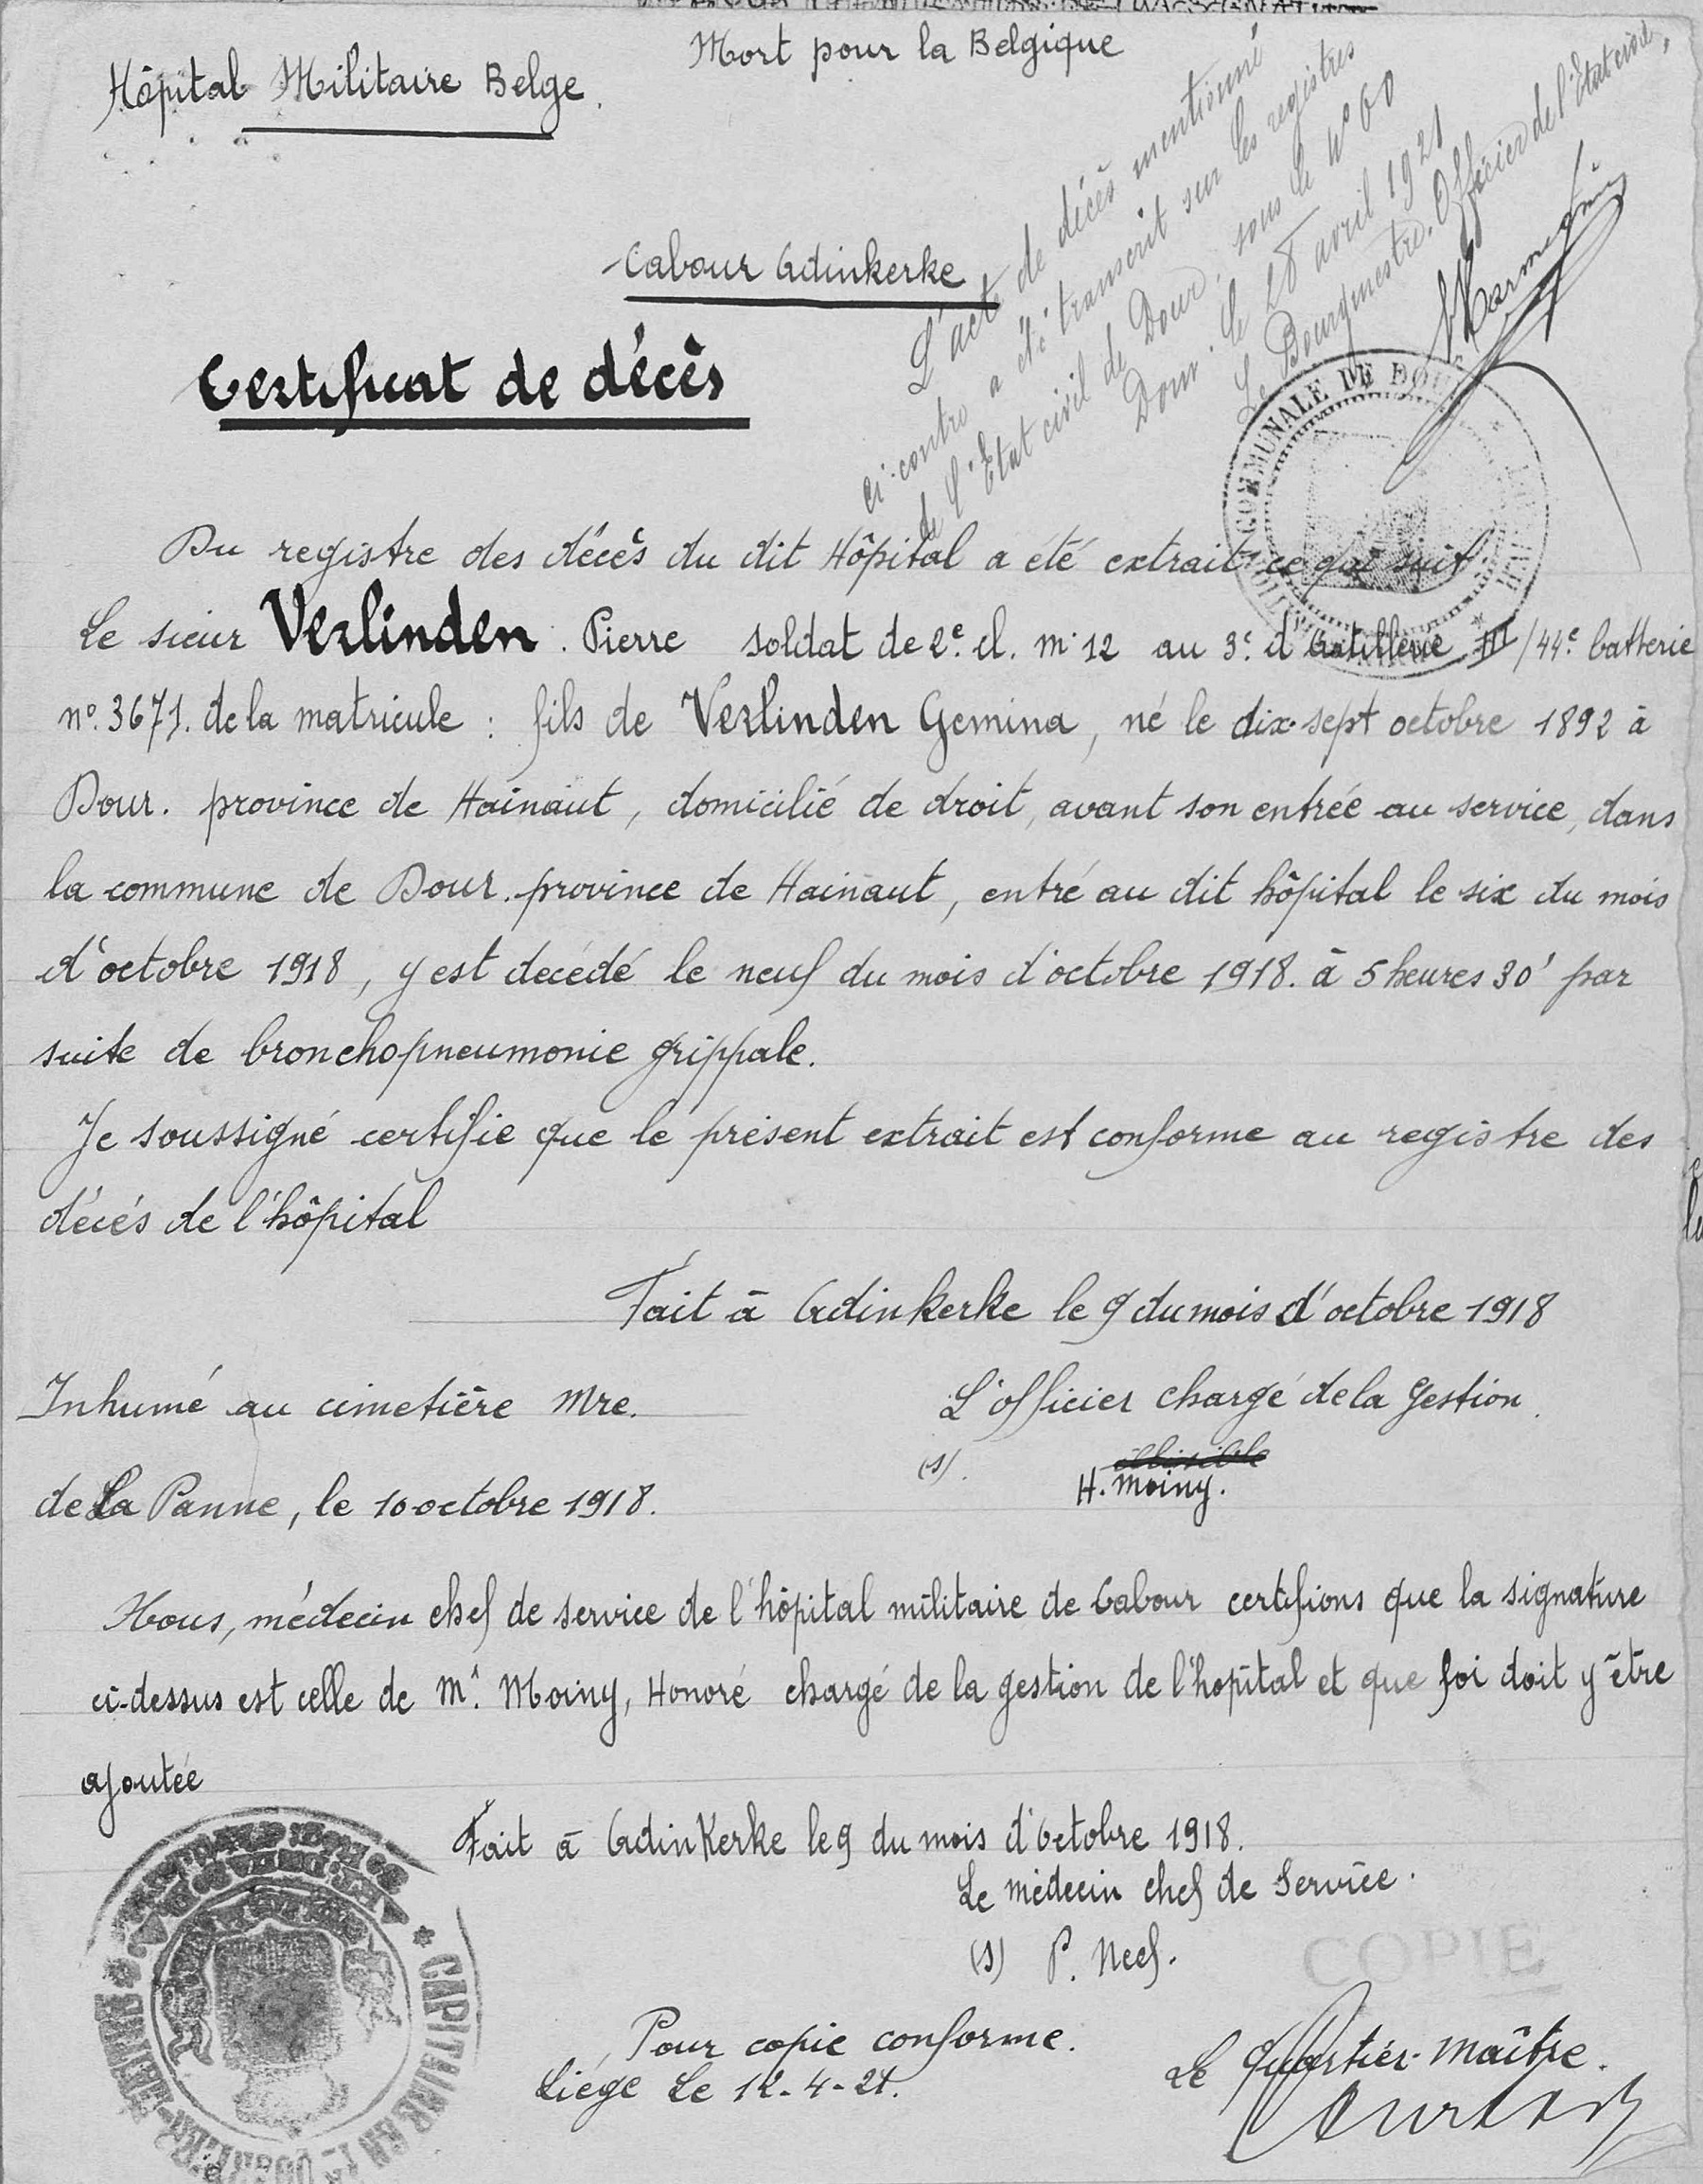 Mort pour la Belgique
Hôpital Militaire Belge.
Cabour Adinkerke
Certificat de décès
L'acte de décès mentionné
ci-contre a été transcrit sur les registres
de l'Etat civil de Dour, sous le N° 60
Dour le 28 avril 1921
Le Bourgmestre. Officier de l'Etat civil,
COMMUNALE DE DOUR
Du registre des décès du dit Hôpital a été extrait ce qui suit
Le sieur Verlinden. Pierre soldat de 2e. cl. m. 12 au 3e. d'Artillerie III/44e. batterie
n°. 3671. de la matricule : fils de Verlinden Gemina, né le dix-sept octobre 1892 à
Dour. province de Hainaut, domicilié de droit, avant son entrée au service, dans
la commune de Dour. province de Hainaut, entré au dit hôpital le six du mois
d'octobre 1918, y est décédé le neuf du mois d'octobre 1918. à 5 heures 30' par
suite de bronchopneumonie grippale.
Je soussigné certifie que le présent extrait est conforme au registre des
décés de l'hôpital
Fait à Adinkerke le 9 du mois d'octobre 1918
Inhumé au cimetière Mre.
L'officier chargé de la Gestion.
(s). illisible
H. Moiny.
de La Panne, le 10 octobre 1918.
Nous, médecin chef de service de l'hôpital militaire de Cabour certifions que la signature
ci-dessus est celle de Mr. Moiny, Honoré chargé de la gestion de l'hopital et que foi doit y être
ajoutée
Fait à Adinkerke le 9 du mois d'Octobre 1918.
Le médecin chef de Service.
(s) P. Neef.
COPIE
Pour copie conforme.
Liége Le 12-4-21.
Le Quartier-Maître.
CAPITAINE